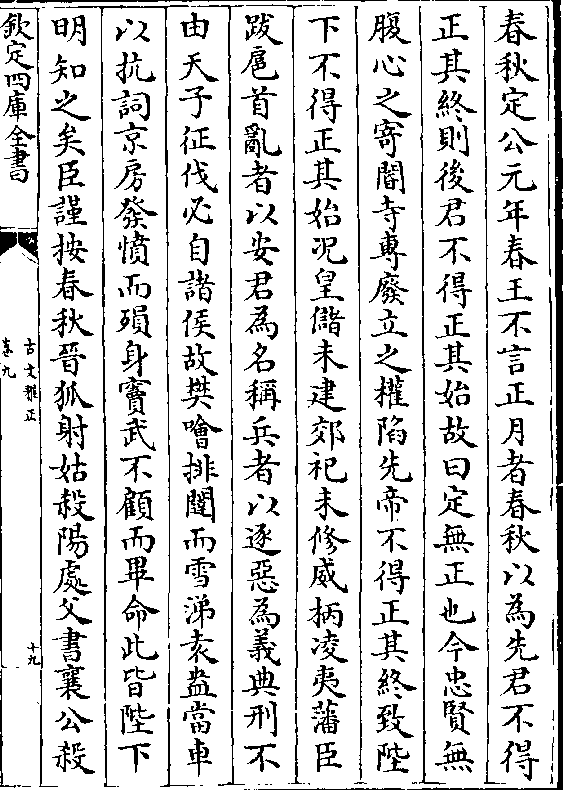 春秋定公元年春王不言正月者春秋以為先君不得
正其終則後君不得正其始故曰定無正也今忠賢無
腹心之寄閽寺專廢立之權陷先帝不得正其終致陛
下不得正其始况皇儲未建郊祀未修威柄凌夷藩臣
跋扈首亂者以安君為名稱兵者以逐惡為義典刑不
由天子征伐必自諸侯故樊噲排闥而雪涕袁盎當車
以抗詞京房發憤而殞身竇武不顧而畢命此皆陛下
明知之矣臣謹按春秋晉狐射姑殺陽處父書襄公殺
欽定四庫全書
古文雅正
卷九
十九